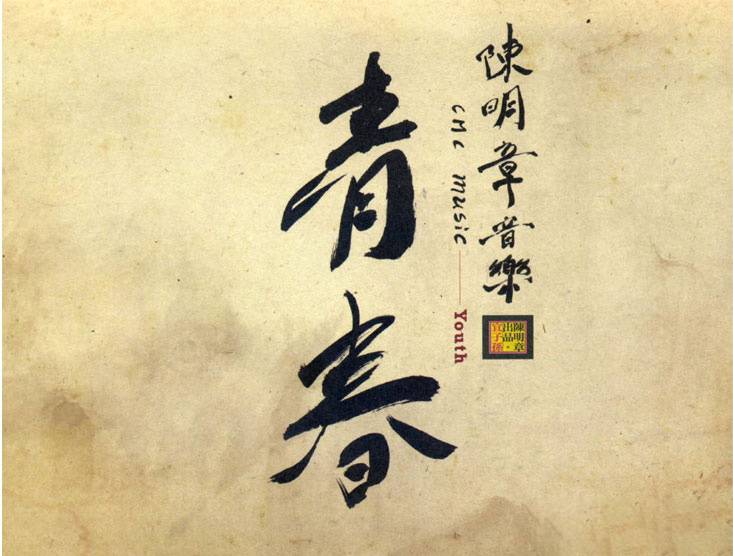 陳明章音樂
cMc music
Youth
青春
陳明章
出品·
宜子孫